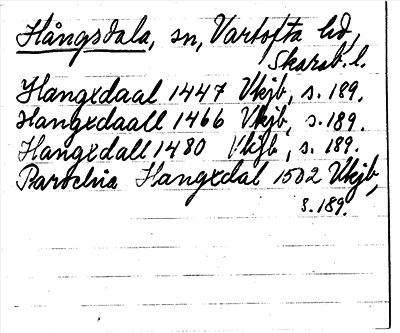 Hångsdala, sn, Vartofta hd,
Skarab. l.
Hangxdaal 1447 Vkjb, s. 189.
Hangxdaall 1466 Vkjb, s. 189.
Hangxdall 1480 Vkjb, s. 189.
Parochia Hangxdal 1502 Vkjb,
s. 189.